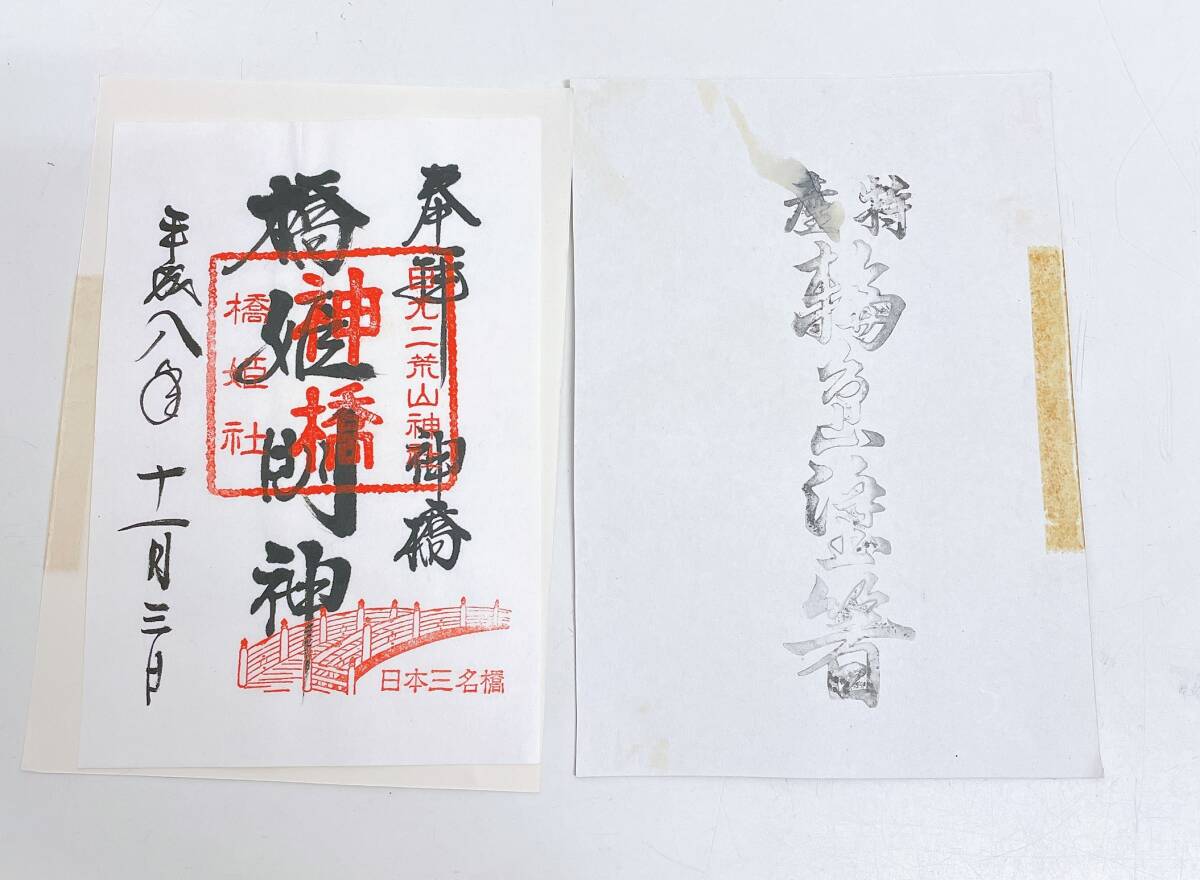 奉拝 神橋
日光二荒山神社
橋姫明神
神橋
橋姫社
平成八年十一月三日
日本三名橋
特産
輪島塗箸